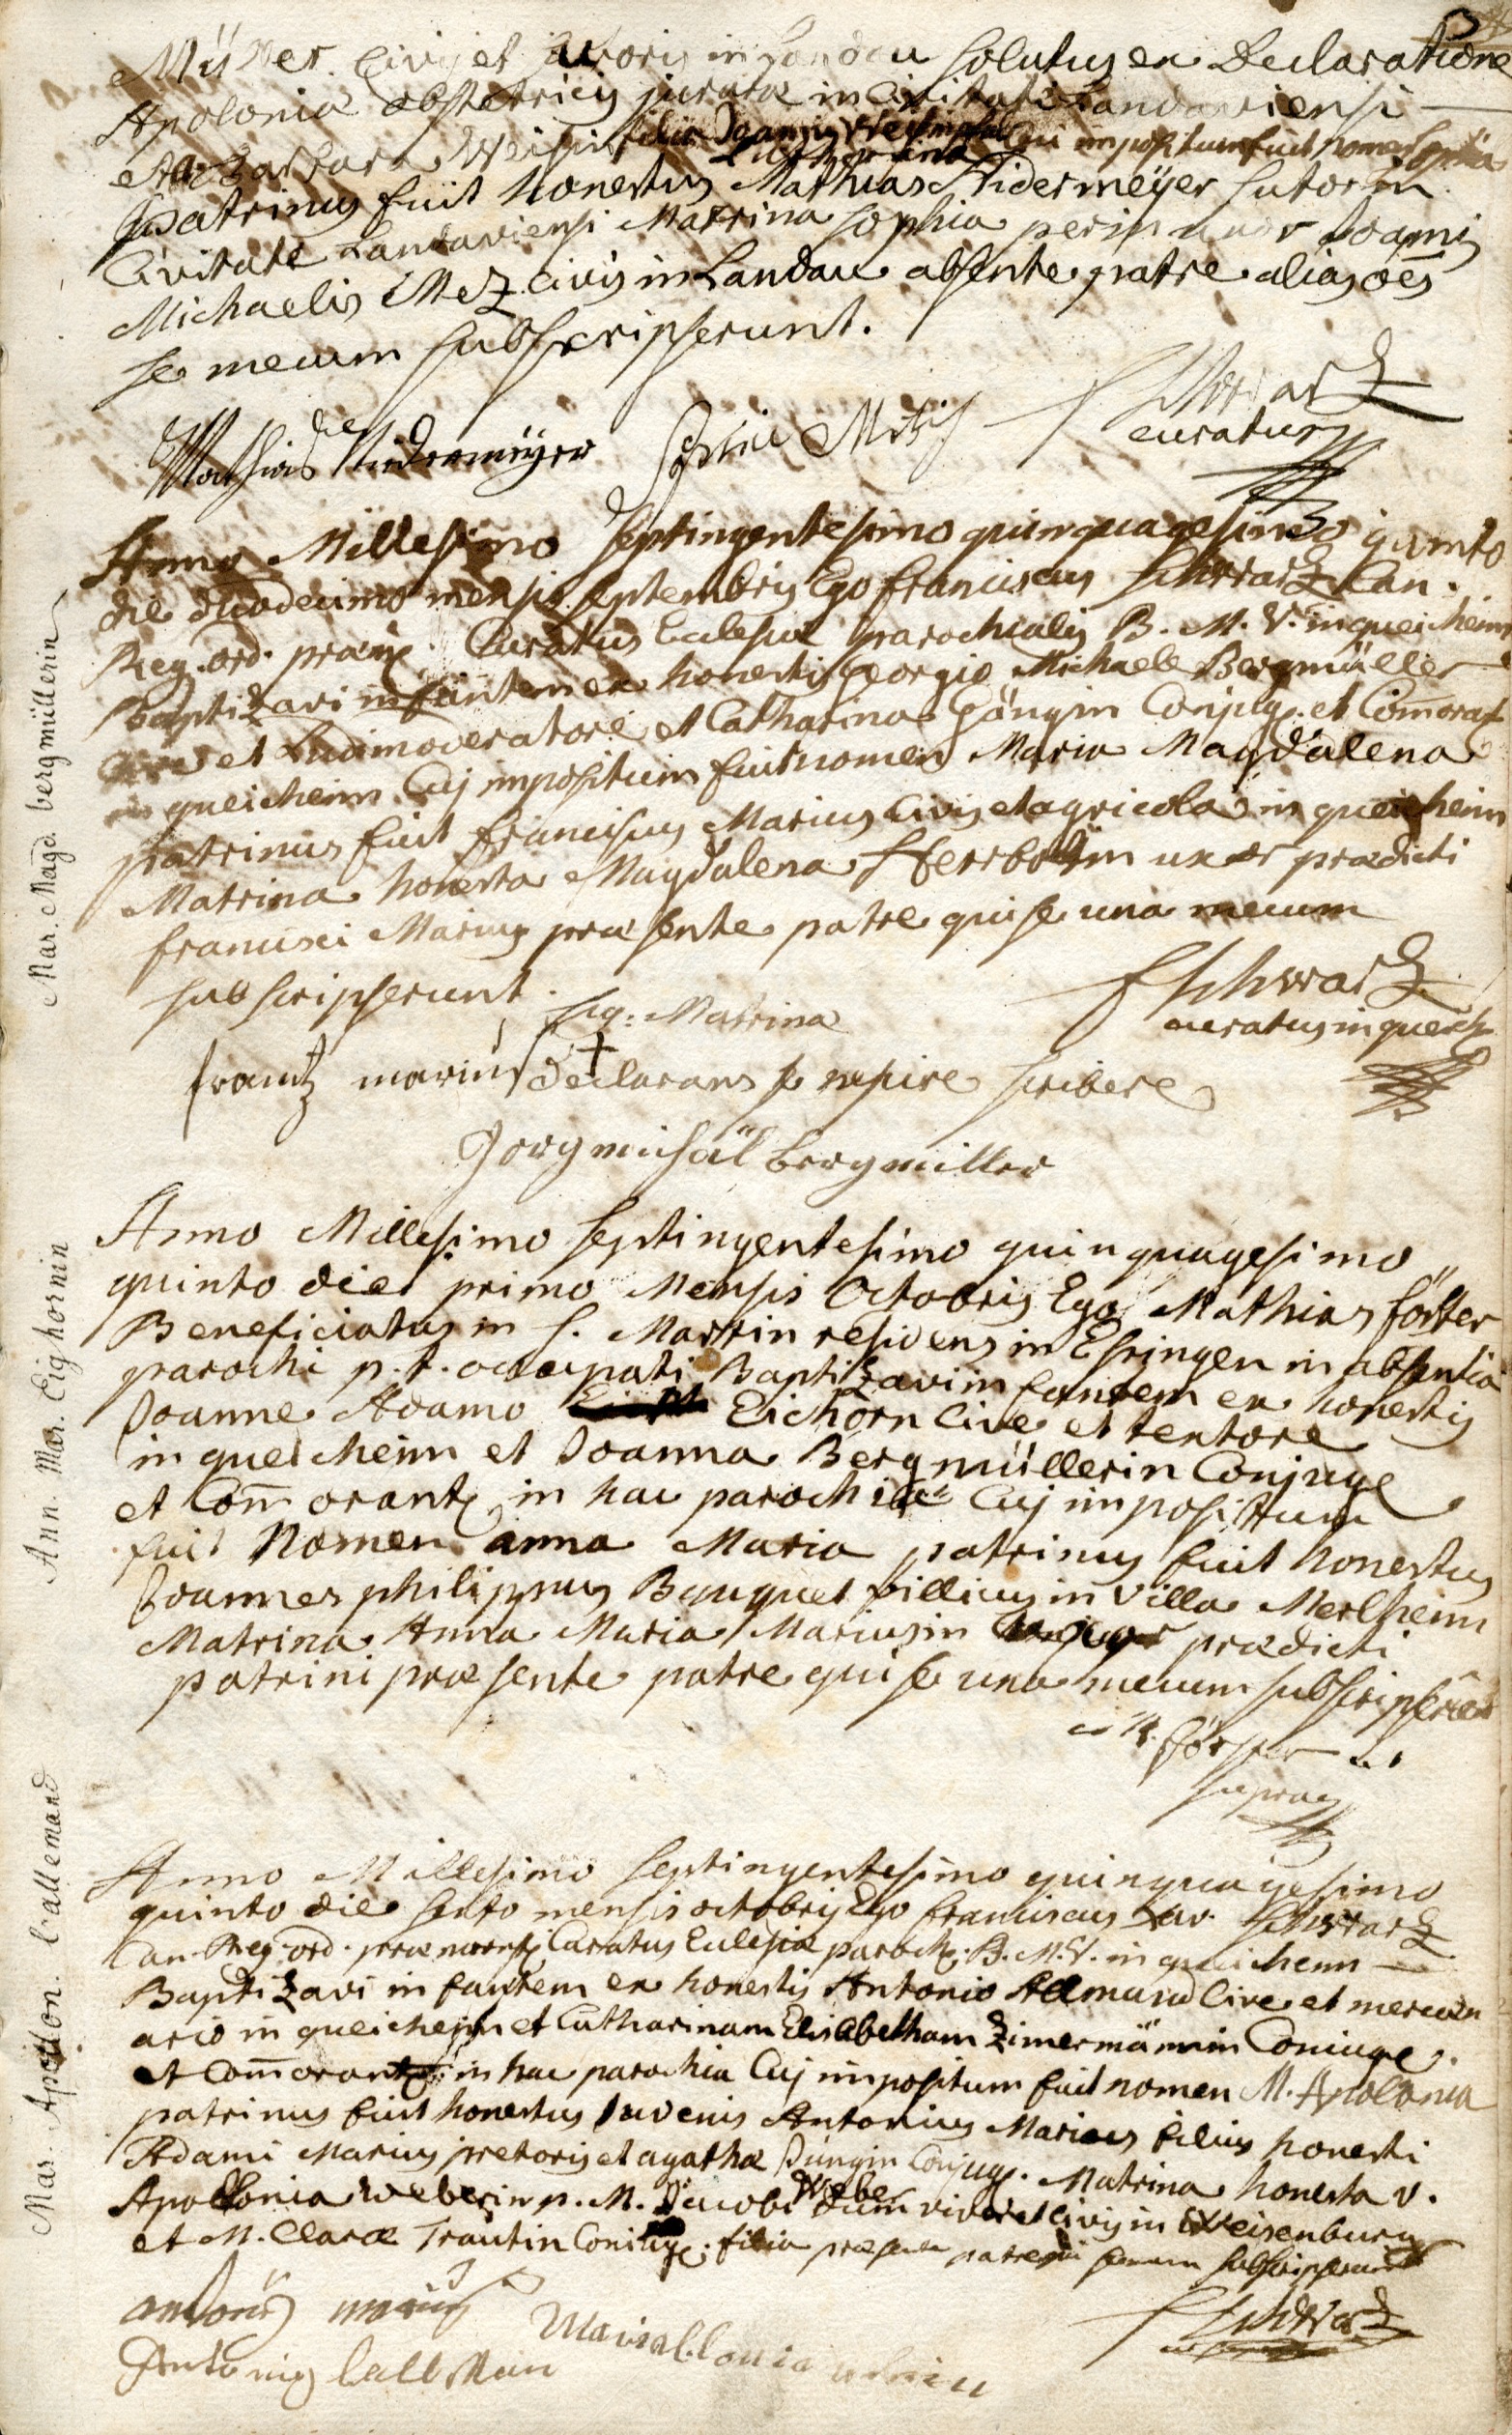 Müller civis et in Landau solutus ex Declaratione
Apolonia obstetricis jurata in Civitate Landaviensi
Barbara
cui impositum fuit nomen Sophia
Lutherana
patrinus fuit honestus Mathias Nidermeÿer sutor in
Civitate Landaviensi Matrina sophia Joannis
Michaelis Mez civis in Landau absente patre alias oēs
se mecum subscripserunt.
Mathias Nidermeÿer
Sophia
Schwartz
curatus
Anno Millesimo septingentesimo quinquagesimo quinto
die duodecimo mensis septembris Ego franciscus schwartz Can.
Reg. ord. præm. Curatus Ecclesiæ parochialis B. M. V. in queicheim
baptizavi infantem ex honestis georgio Michaele Bergmüller
Cive et Ludimoderatore et Catharina Gängin Conjug. et Com̄orat
in queicheim Cuj impositum fuit nomen Maria Magdalena
patrinus fuit franciscus Marius Civis et agricola in queicheim
Matrina honesta Magdalena uxor prædicti
francisci Marius præsente patre qui se una mecum
subscripserunt.
sig: Matrina
FSchwartz
curatus in queich
frantz marius
+
declarans se nescire scribere
Jorg michäl bergmiller
Anno Millesimo septingentesimo quinquagesimo
quinto die primo Mensis Octobris Ego Mathias förster
Beneficiatus in S. Martin residens in Essingen in absentia
parochi p. t. occupati Baptizavi infantem ex honestis
Joanne Adamo Eichorn Cive et textore
in queicheim et Joanna Bergmüllerin Conjuge
et Com̄orant in hac parochia Cuj impositum
fuit Nomen anna Maria patrinus fuit honestus
Joannes philippus Bauquet villicus in Villa Merlheim
Matrina Anna Maria Mariusin prædicti
patrini præsente patre qui se una mecum subscripserūt
M. förster
supra
Anno Millesimo septingentesimo quinquagesimo
quinto die sexto mensis octobris Ego franciscus Xav. schwartz
Can. Reg. ord. præmonst. Curatus Eclesiæ paroch. B. M. V. in queicheim
Baptizavi infantem ex honestis Antonio Allmand Cive et mercen
ario in queicheim et Catharinam Elisabetham Zimermännin Coniuge.
et Com̄orant in hac parochia Cuj impositum fuit nomen M. Apolonia
patrinus fuit honestus Iuvenis Antonius Marius filius honesti
Adami Marius pretoris et agathæ Jungin Conjug. Matrina honesta v.
Apollonia weberin p. M. Jacobi Weber dum viveret Civis in Weisenburg
et M. Claræ Trautin Coniug. filia præsente patre qui se mecum subscripserunt
antonius marius
Schwartz
Antonig lallMan
Mar. Magd. bergmüllerin
Ann. Mar. Eighornin
Mar. Apollon. l'allemand